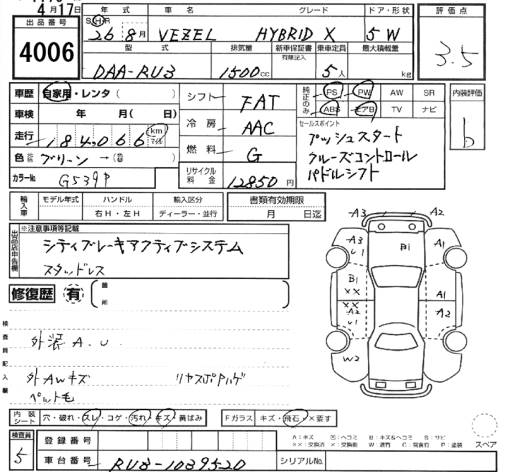 4月17日
年式 車名 グレード ドア・形状
S・H・R
26年 8月 VEZEL HYBRID X 5W
評価点
3.5
出品番号
4006
型式 排気量 新車保証書 有無記入 乗車定員 最大積載量
DAA-RU3 1500cc 5人 kg
車歴 自家用・レンタ( )
車検 年 月( 日)
走行 184,066 km マイル
色 グリーン → ( )
カラー№ G539P
シフト FAT
冷房 AAC
燃料 G
リサイクル料金 12850円
純正のみ PS PW AW SR
ABS エアB TV ナビ
内装評価
b
セールスポイント
プッシュスタート
クルーズコントロール
パドルシフト
輸入車 モデル年式 ハンドル 輸入区分
年 右H・左H ディーラー・並行
書類有効期限
月 日迄
出品店申告欄 ※注意事項等記載
シティブレーキアクティブシステム
スタッドレス
修復歴 有 箇所
検査員記入欄
外装 A.U
外AWキズ リヤスポハゲ
ペット毛
A3 A2
A3 U1 B1 A1
B1 XX
XX A2 U1 A1 A2
W2
内装シート 穴・破れ・スレ・コゲ・汚れ・キズ・黄ばみ
Fガラス キズ・飛石・×要す
検査員 5
登録番号
車台番号 RU3-1039520
シリアルNo.
A:キズ U:ヘコミ B:キズ&ヘコミ S:サビ
スペア